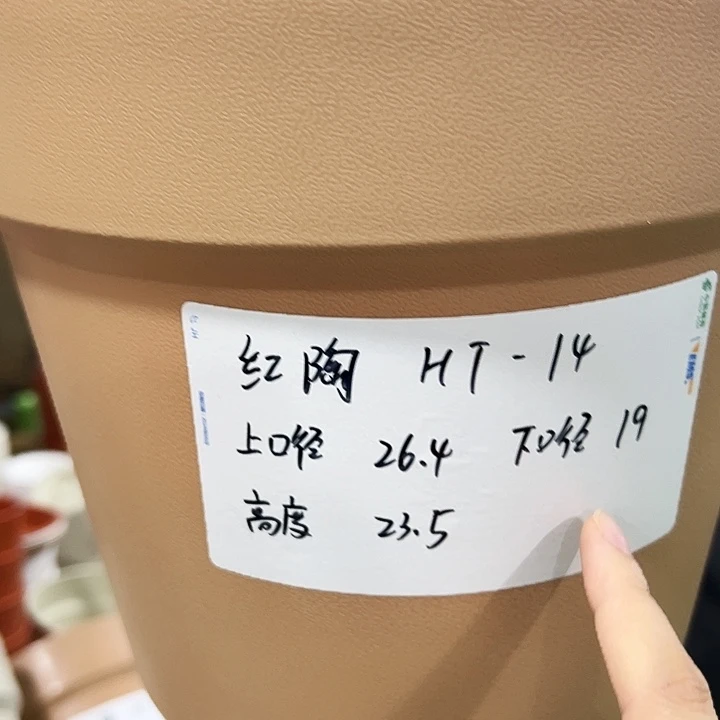 红陶 HT-14
上口径 26.4 下口径 19
高度 23.5